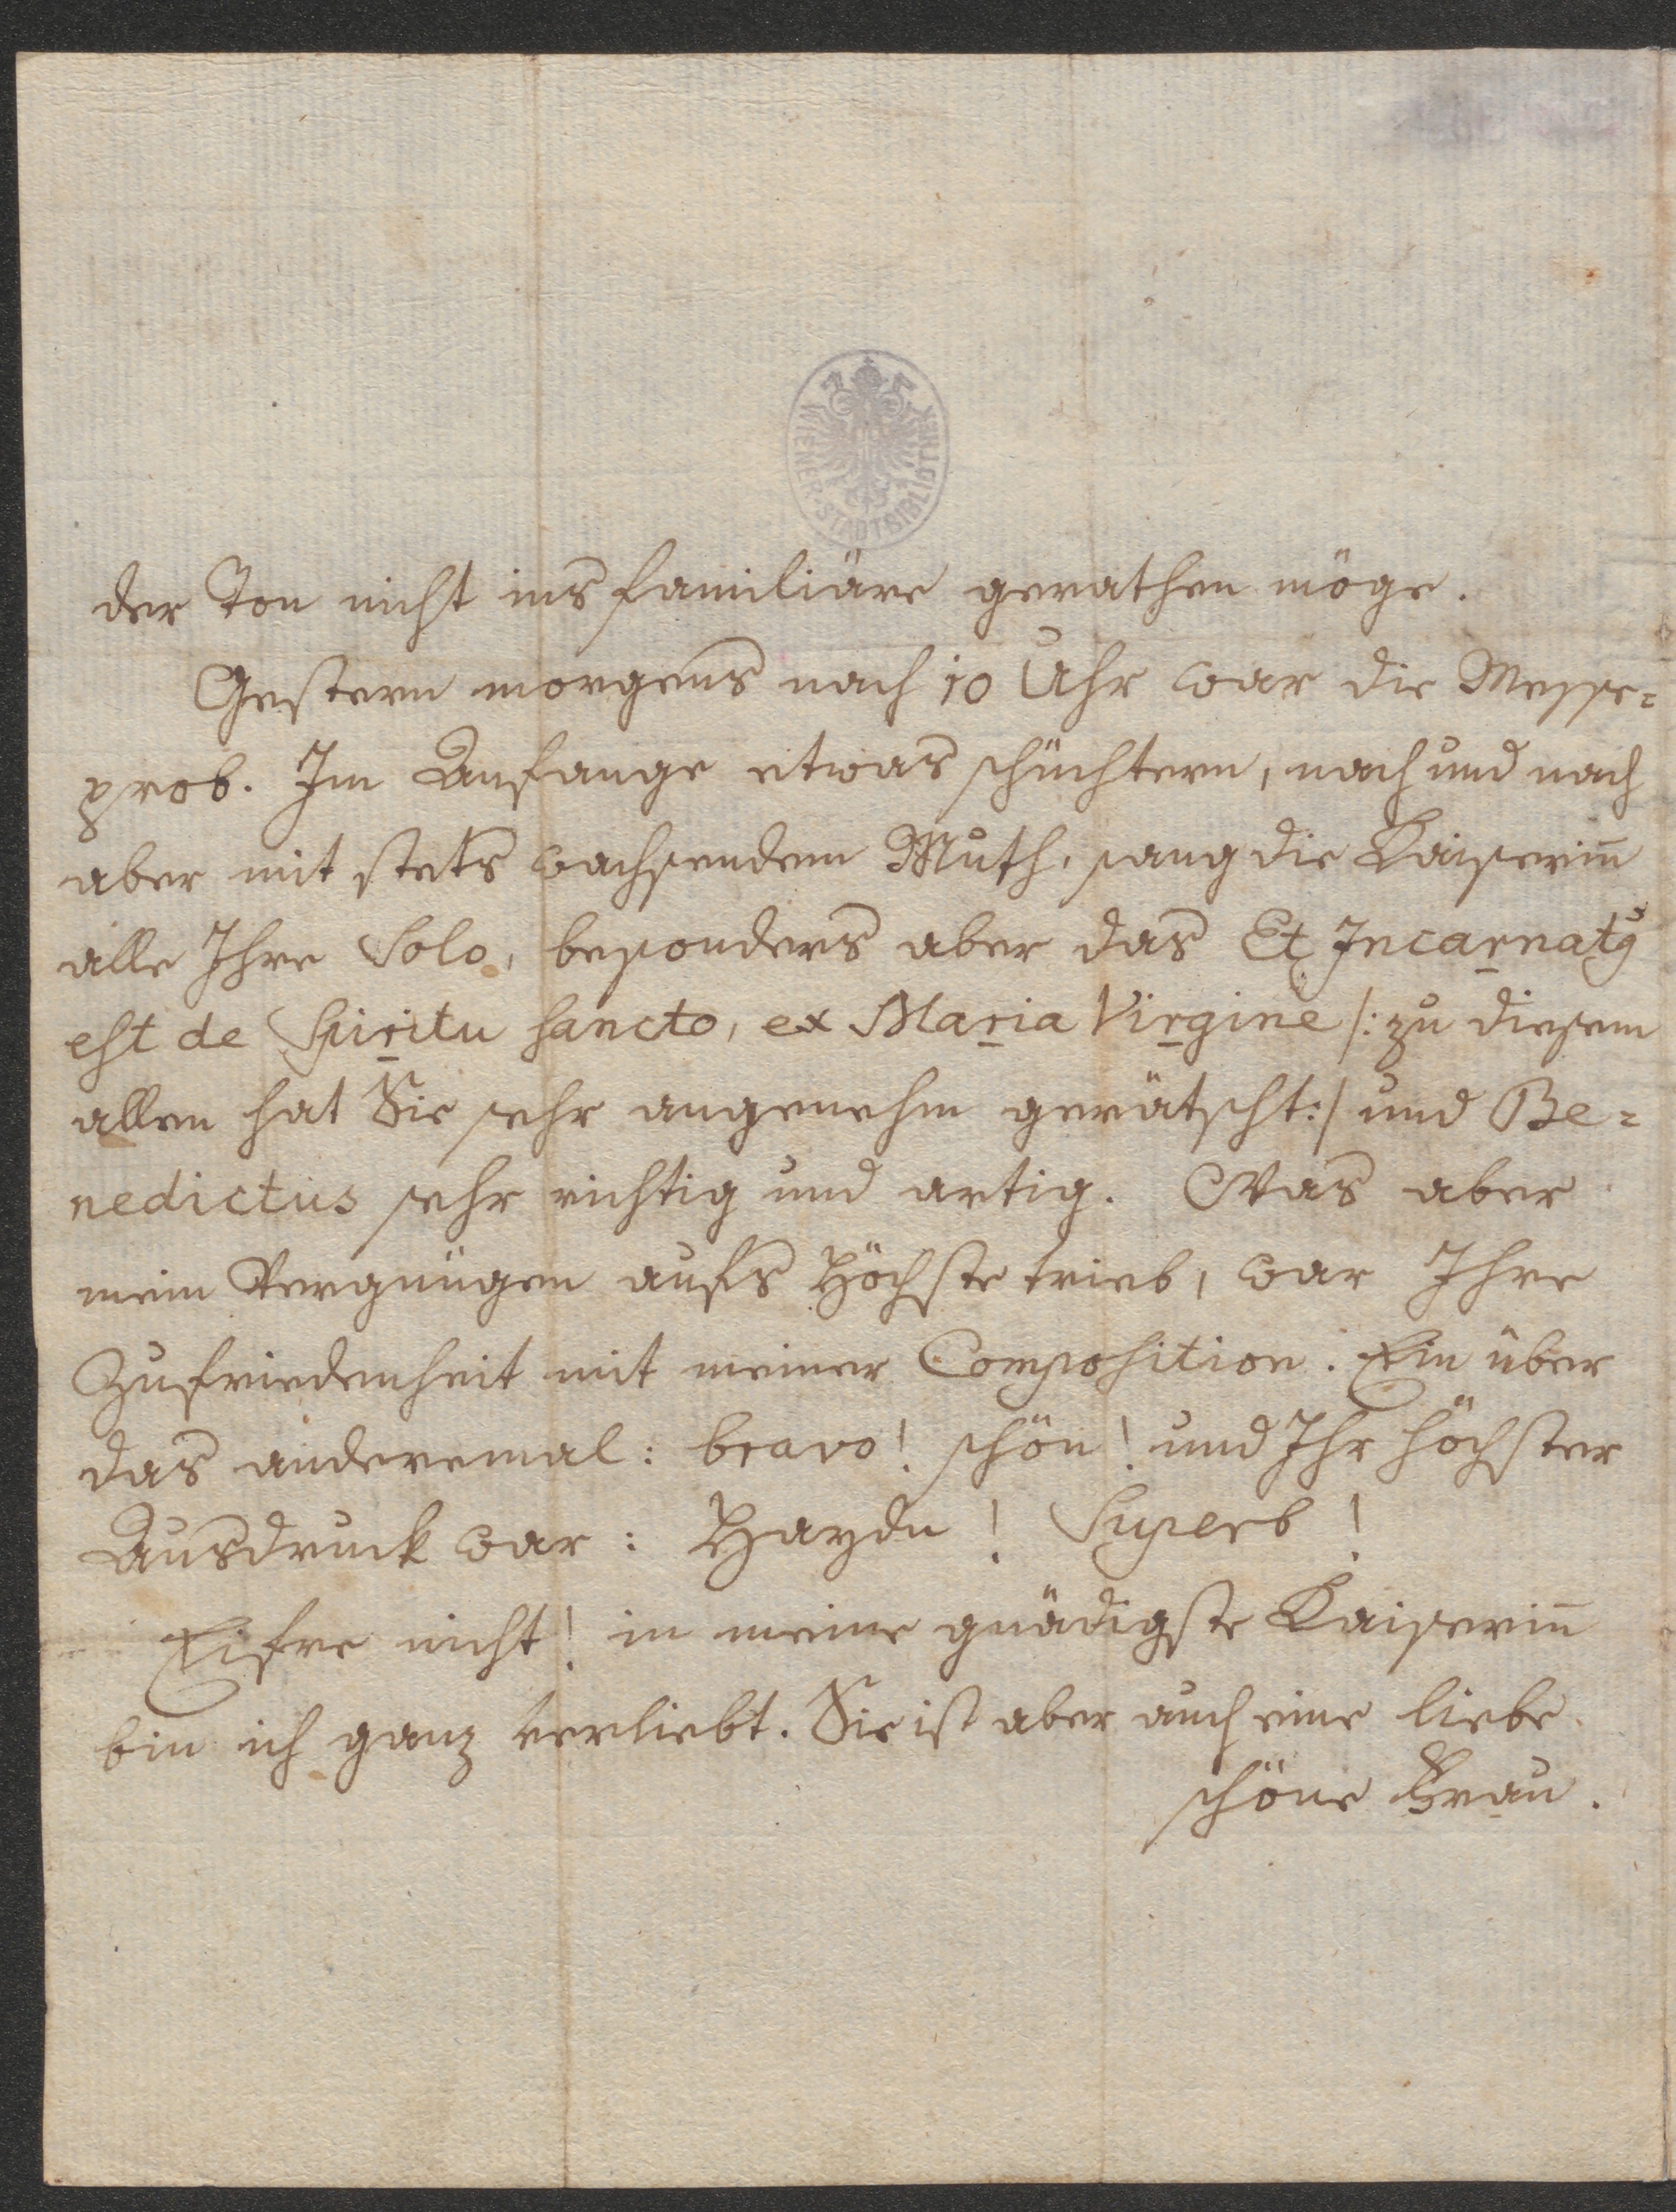 WIENER-STADTBIBLIOTHEK
der Ton nicht ins familiäre gerathen möge.
Gestern morgens nach 10 Uhr war die Messe=
prob. Im Anfange etwas schüchtern, nach und nach
aber mit stets wachsendem Muth, sang die Kaiserin̅
alle Ihre Solo, besonders aber das Et Incarnatꝰ
est de Spiritu sancto, ex Maria Virgine /: zu diesem
allen hat Sie sehr angenehm gerätscht :/ und Be=
nedictus sehr richtig und artig. Was aber
mein Vergnügen aufs Höchste trieb, war Ihre
Zufriedenheit mit meiner Composition. Ein über
das anderemal: bravo! schön! und Ihr höchster
Ausdruck war: Haydn! Superb!
Eifre nicht! in meine gnädigste Kaiserin̅
bin ich ganz verliebt. Sie ist aber auch eine liebe
schöne Frau.